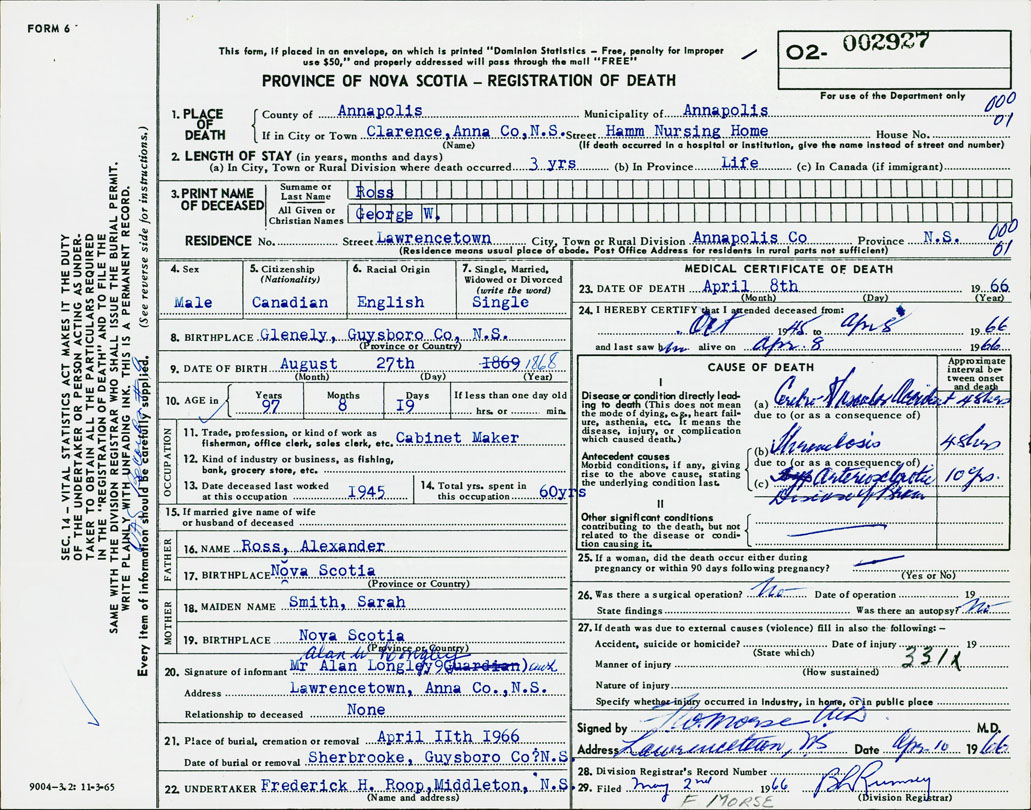 FORM 6
This form, if placed in an envelope, on which is printed "Dominion Statistics – Free, penalty for improper
use $50," and properly addressed will pass through the mail "FREE"
O2- 002927
PROVINCE OF NOVA SCOTIA – REGISTRATION OF DEATH
For use of the Department only
000
01
1. PLACE OF DEATH
County of Annapolis Municipality of Annapolis
If in City or Town Clarence,Anna Co,N.S. Street Hamm Nursing Home House No.
(Name) (If death occurred in a hospital or institution, give the name instead of street and number)
2. LENGTH OF STAY (in years, months and days)
(a) In City, Town or Rural Division where death occurred 3 yrs (b) In Province Life (c) In Canada (if immigrant)
3. PRINT NAME OF DECEASED
Surname or Last Name Ross
All Given or Christian Names George W.
RESIDENCE No. Street Lawrencetown City, Town or Rural Division Annapolis Co Province N.S.
(Residence means usual place of abode. Post Office Address for residents in rural parts not sufficient)
000
01
4. Sex
Male
5. Citizenship
(Nationality)
Canadian
6. Racial Origin
English
7. Single, Married,
Widowed or Divorced
(write the word)
Single
8. BIRTHPLACE Glenely, Guysboro Co, N.S.
(Province or Country)
9. DATE OF BIRTH August 27th 1869 1868
(Month) (Day) (Year)
10. AGE in
Years Months Days If less than one day old
97 8 I9 hrs. or min.
OCCUPATION
11. Trade, profession, or kind of work as
fisherman, office clerk, sales clerk, etc. Cabinet Maker
12. Kind of industry or business, as fishing,
bank, grocery store, etc.
13. Date deceased last worked
at this occupation I945
14. Total yrs. spent in
this occupation 60yrs
15. If married give name of wife
or husband of deceased
FATHER
16. NAME Ross, Alexander
17. BIRTHPLACE Nova Scotia
(Province or Country)
MOTHER
18. MAIDEN NAME Smith, Sarah
19. BIRTHPLACE Nova Scotia
(Province or Country)
20. Signature of informant Mr Alan Longley (Guardian)
Address Lawrencetown, Anna Co.,N.S.
Relationship to deceased None
21. Place of burial, cremation or removal April IIth I966
Date of burial or removal Sherbrooke, Guysboro Co?N.S.
22. UNDERTAKER Frederick H. Roop,Middleton, N.S.
(Name and address)
MEDICAL CERTIFICATE OF DEATH
23. DATE OF DEATH April 8th 1966
(Month) (Day) (Year)
24. I HEREBY CERTIFY that I attended deceased from:
Oct 1945 to Apr 8 1966
and last saw him alive on Apr. 8 1966
CAUSE OF DEATH
Approximate
interval be-
tween onset
and death
I
Disease or condition directly lead-
ing to death (This does not mean
the mode of dying, e.g., heart fail-
ure, asthenia, etc. It means the
disease, injury, or complication
which caused death.)
(a) Cerebro Vascular Accident 48hrs
due to (or as a consequence of)
Antecedent causes
Morbid conditions, if any, giving
rise to the above cause, stating
the underlying condition last.
(b) Thrombosis 48hrs
due to (or as a consequence of)
(c) Arteriosclerotic 10 yrs.
Disease of Brain
II
Other significant conditions
contributing to the death, but not
related to the disease or condi-
tion causing it.
25. If a woman, did the death occur either during
pregnancy or within 90 days following pregnancy?
(Yes or No)
26. Was there a surgical operation? No Date of operation 19
State findings Was there an autopsy? No
27. If death was due to external causes (violence) fill in also the following: –
Accident, suicide or homicide? Date of injury 19
(State which)
331X
Manner of injury
(How sustained)
Nature of injury
Specify whether injury occurred in industry, in home, or in public place
Signed by Morse M.D.
Address Lawrencetown, NS Date Apr. 10 1966
28. Division Registrar's Record Number
29. Filed May 2nd 1966
(Division Registrar)
F MORSE
SEC. 14 – VITAL STATISTICS ACT MAKES IT THE DUTY
OF THE UNDERTAKER OR PERSON ACTING AS UNDER-
TAKER TO OBTAIN ALL THE PARTICULARS REQUIRED
IN THE "REGISTRATION OF DEATH" AND TO FILE THE
SAME WITH THE DIVISION REGISTRAR WHO SHALL ISSUE THE BURIAL PERMIT.
WRITE PLAINLY WITH UNFADING INK. THIS IS A PERMANENT RECORD.
Every item of information should be carefully supplied. (See reverse side for instructions.)
9004-3.2: 11-3-65